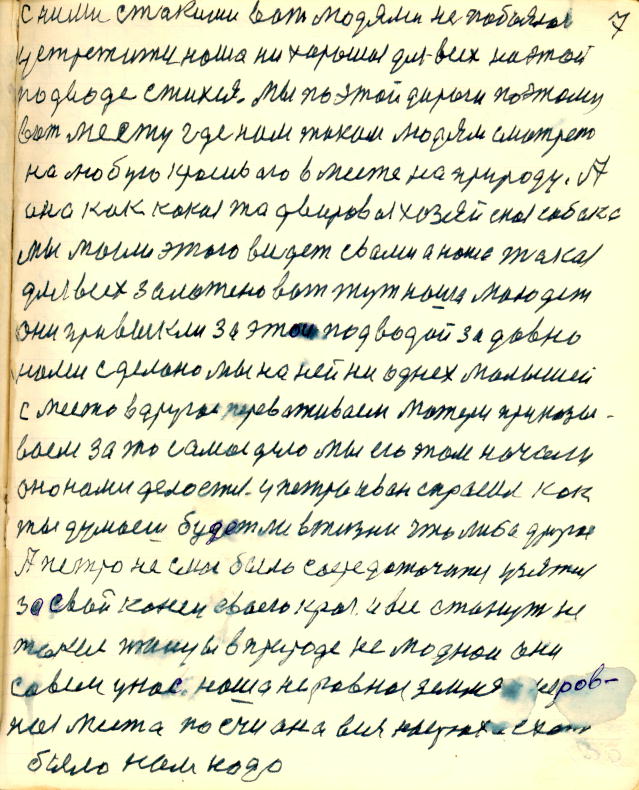 с ними стакими вот людями не побоялся 7
устретити наша ни хорошая для всех на этой
подводе стихия. Мы по этой дороги поэтому
вот месту где нам таким людям смотрет
на любую красиваго в месте на природу. А
она как какая та двировая хозяйская собака
мы могли этого видет свами а наше такая
для всех заложено вот тут наша молодеж
они привыкли за этой подводой за давно
нами сделано мы на ней ни одних малышей
с место вдругое переваживаем матери приказы-
ваем за то самое дело мы его там начали
оно нами делостя. у петра иван спрасил как
ты думаеш будет ли вжизни что либа другое
А петро не смог было сосредоточити узятия
за свой конец своего края. и все станут не
такел жить в природе не модной они
совсем у нас. наша не ровная земля не ров-
ная места посчи она вся
было нам надо